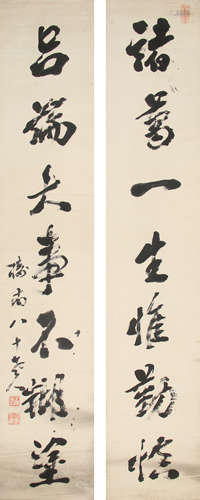 諸葛一生惟勤慎
呂端大事不糊塗
橋南八十老人